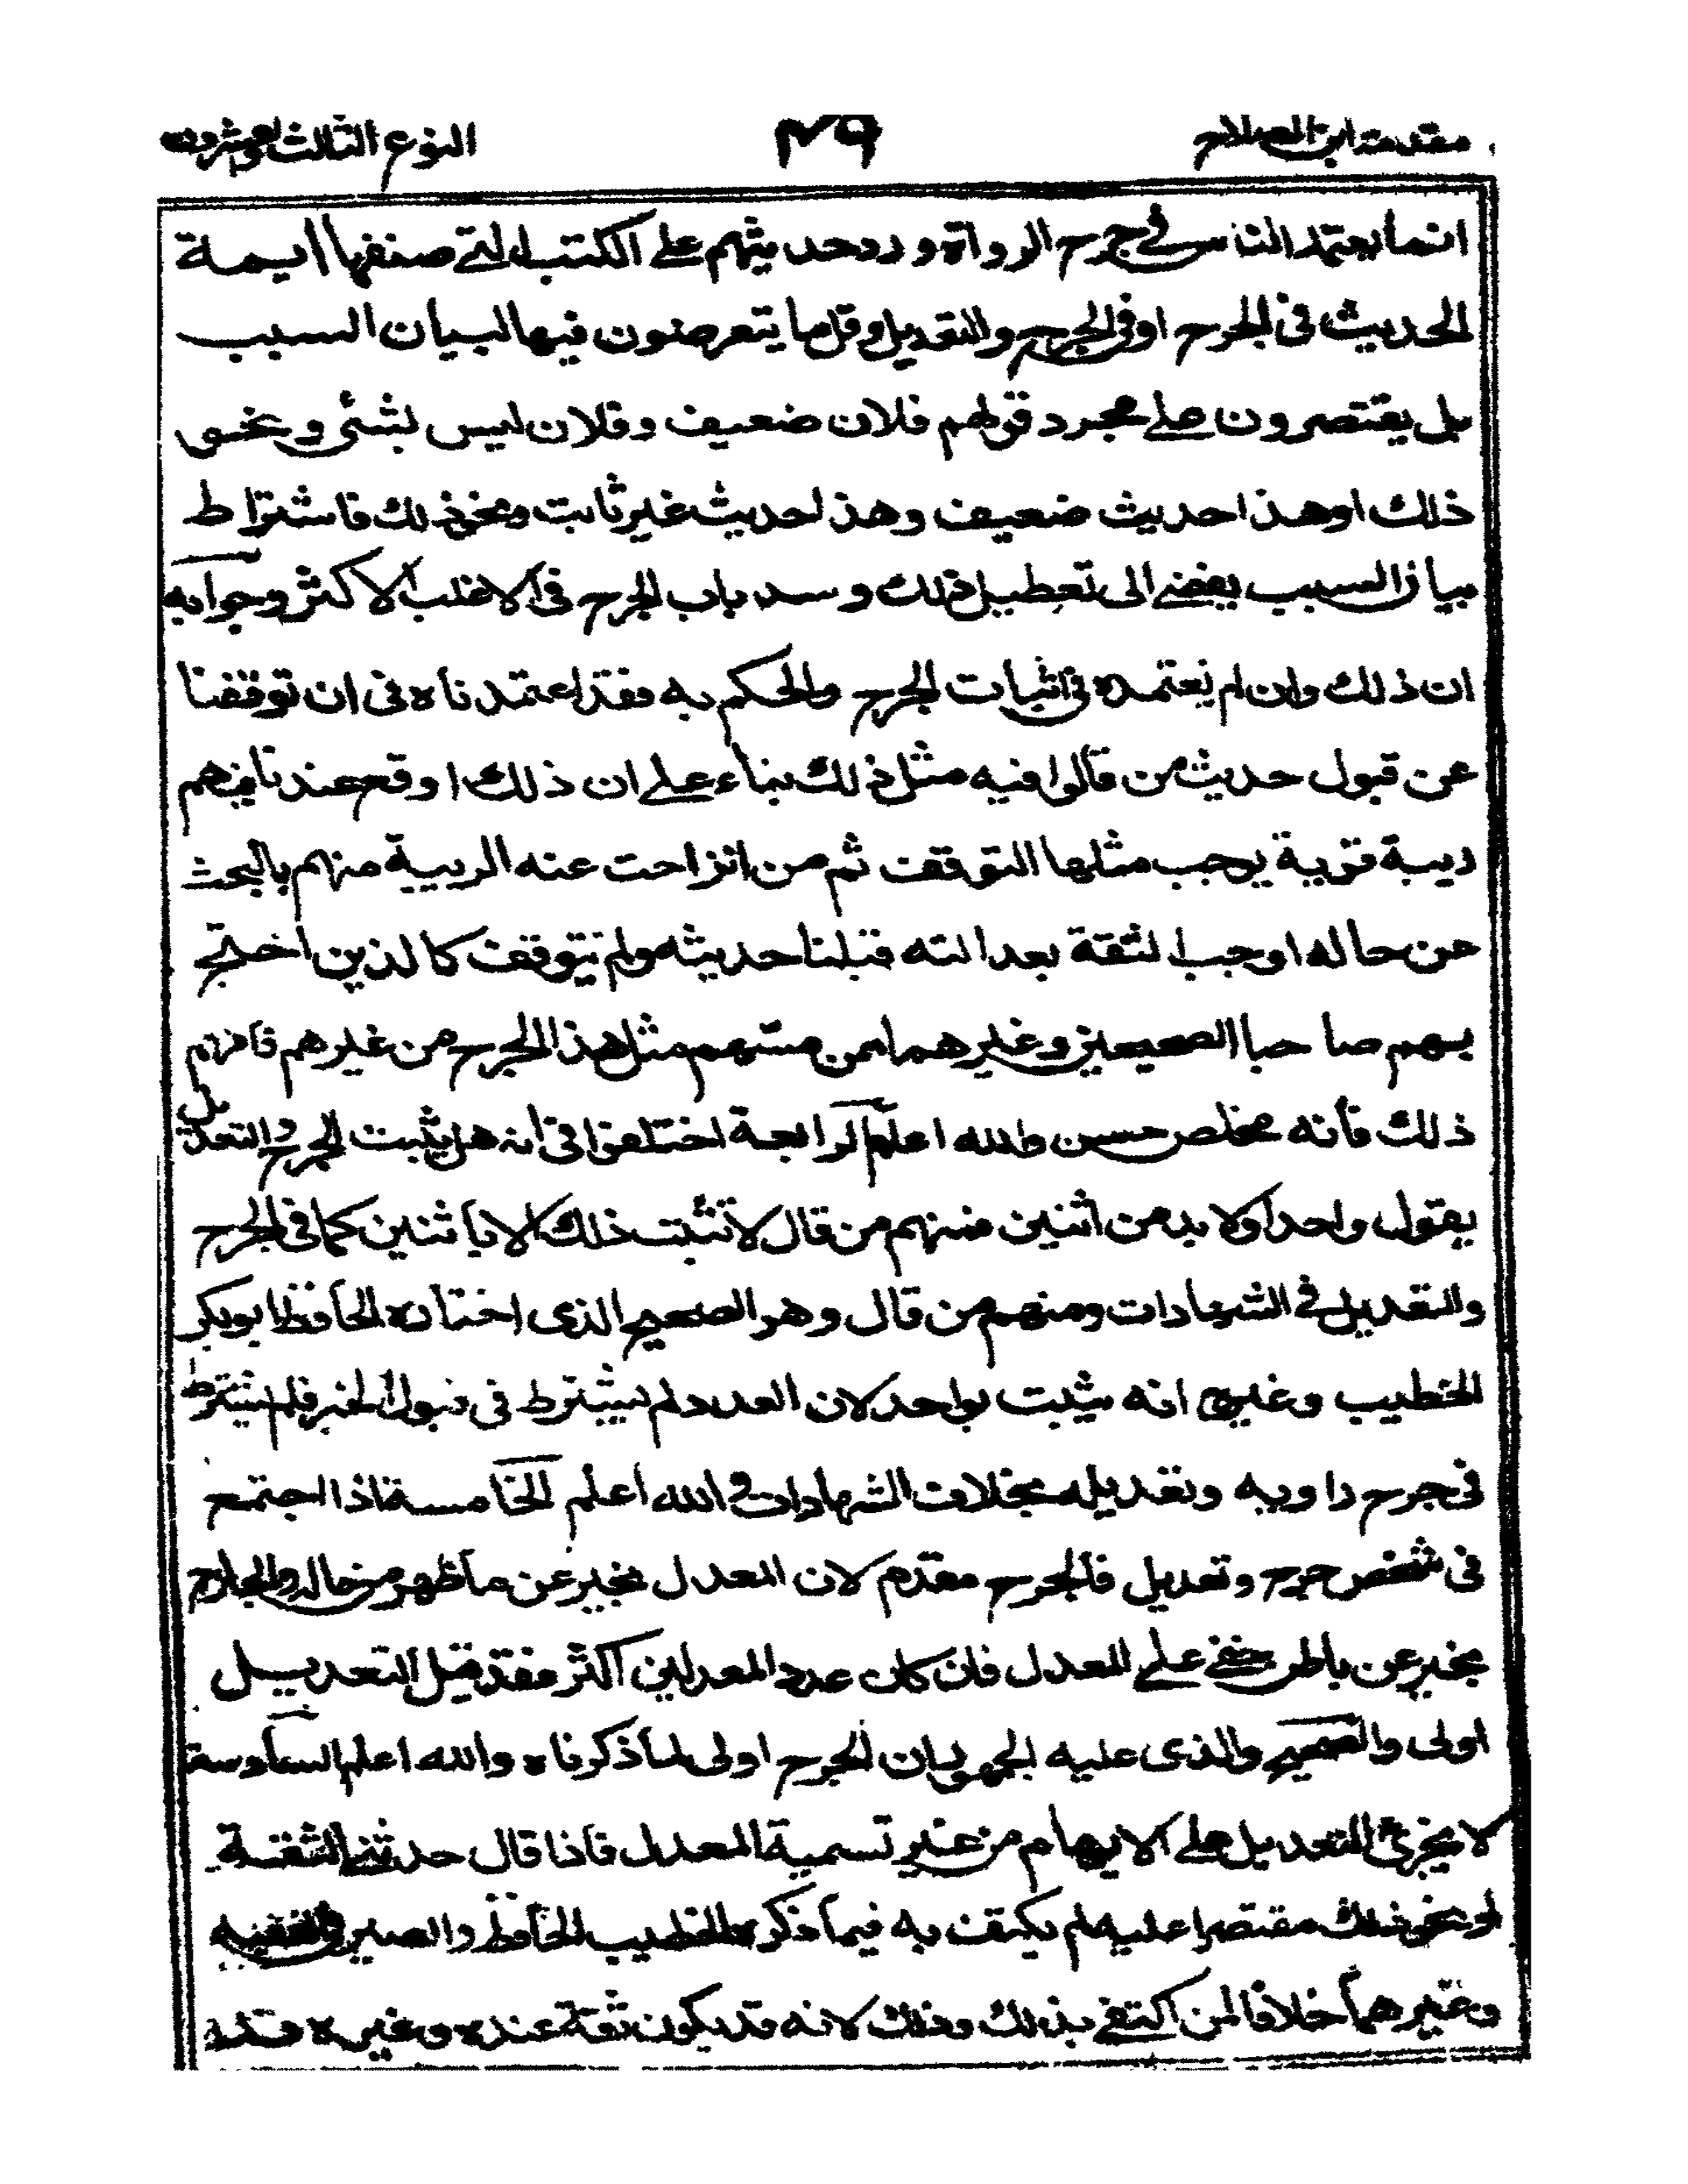 مقدمة ابن الصلاح ٤٩ النوع الثالث والعشرون
انما يعتمد الناس في جرح الرواة ورد حديثهم على الكتب التي صنفها ايمة
الحديث في الجرح او في الجرح والتعديل وقل ما يتعرضون فيها لبيان السبب
بل يقتصرون على مجرد قولهم فلان ضعيف وفلان ليس بشئ ونحو
ذلك او هذا حديث ضعيف وهذا حديث غير ثابت ونحو ذلك فاشتراط
بيان السبب يفضي الى تعطيل ذلك وسد باب الجرح في الاغلب الاكثر وجوابه
ان ذلك وان لم نعتمده في اثبات الجرح والحكم به فقد اعتمدناه في ان توقفنا
عن قبول حديث من قالوا فيه مثل ذلك بناء على ان ذلك اوقع عندنا فيهم
ريبة قوية يوجب مثلها التوقف ثم من انزاحت عنه الريبة منهم بالبحث
عن حاله اوجب الثقة بعدالته قبلنا حديثه ولم نتوقف كالذين احتج
بهم صاحبا الصحيحين وغيرهما ممن مسهم مثل هذا الجرح من غيرهم فافهم
ذلك فانه مخلص حسن والله اعلم الرابعة اختلفوا في انه هل يثبت الجرح والتعديل
بقول واحد اولا بد من اثنين فمنهم من قال لا تثبت ذلك الا باثنين كما في الجرح
والتعديل في الشهادات ومنهم من قال وهو الصحيح الذى اختاره الحافظ ابو بكر
الخطيب وغيره انه يثبت بواحد لان العدد لم يشترط في قبول الخبر فلم يشترط
في جرح راويه وتعديله بخلاف الشهادات والله اعلم الخامسة اذا اجتمع
في شخص جرح وتعديل فالجرح مقدم لان المعدل يخبر عن ما ظهر من حاله والجارح
يخبر عن باطن خفي على المعدل فان كان عدد المعدلين اكثر فقد قيل التعديل
اولى والصحيح والذى عليه الجمهور ان الجرح اولى لما ذكرناه والله اعلم السادسة
لا يجزئ التعديل على الابهام من غير تسمية المعدل فاذا قال حدثني الثقة
او نحو ذلك مقتصرا عليه لم يكتف به فيما ذكره الخطيب الحافظ والصيرفي الفقيه
وغيرهما خلافا لمن اكتفى بذلك وذلك لانه قد يكون ثقة عنده وغيره قد